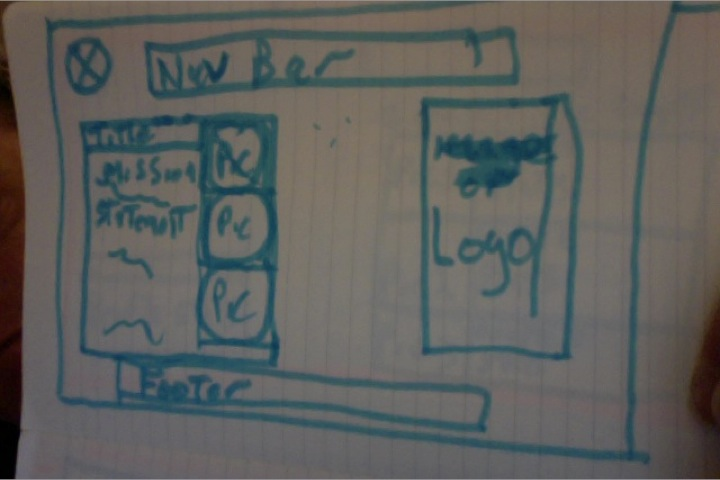 Nav Bar
Title
Mission
Pic
Statement
Pic
Pic
Logo
Footer